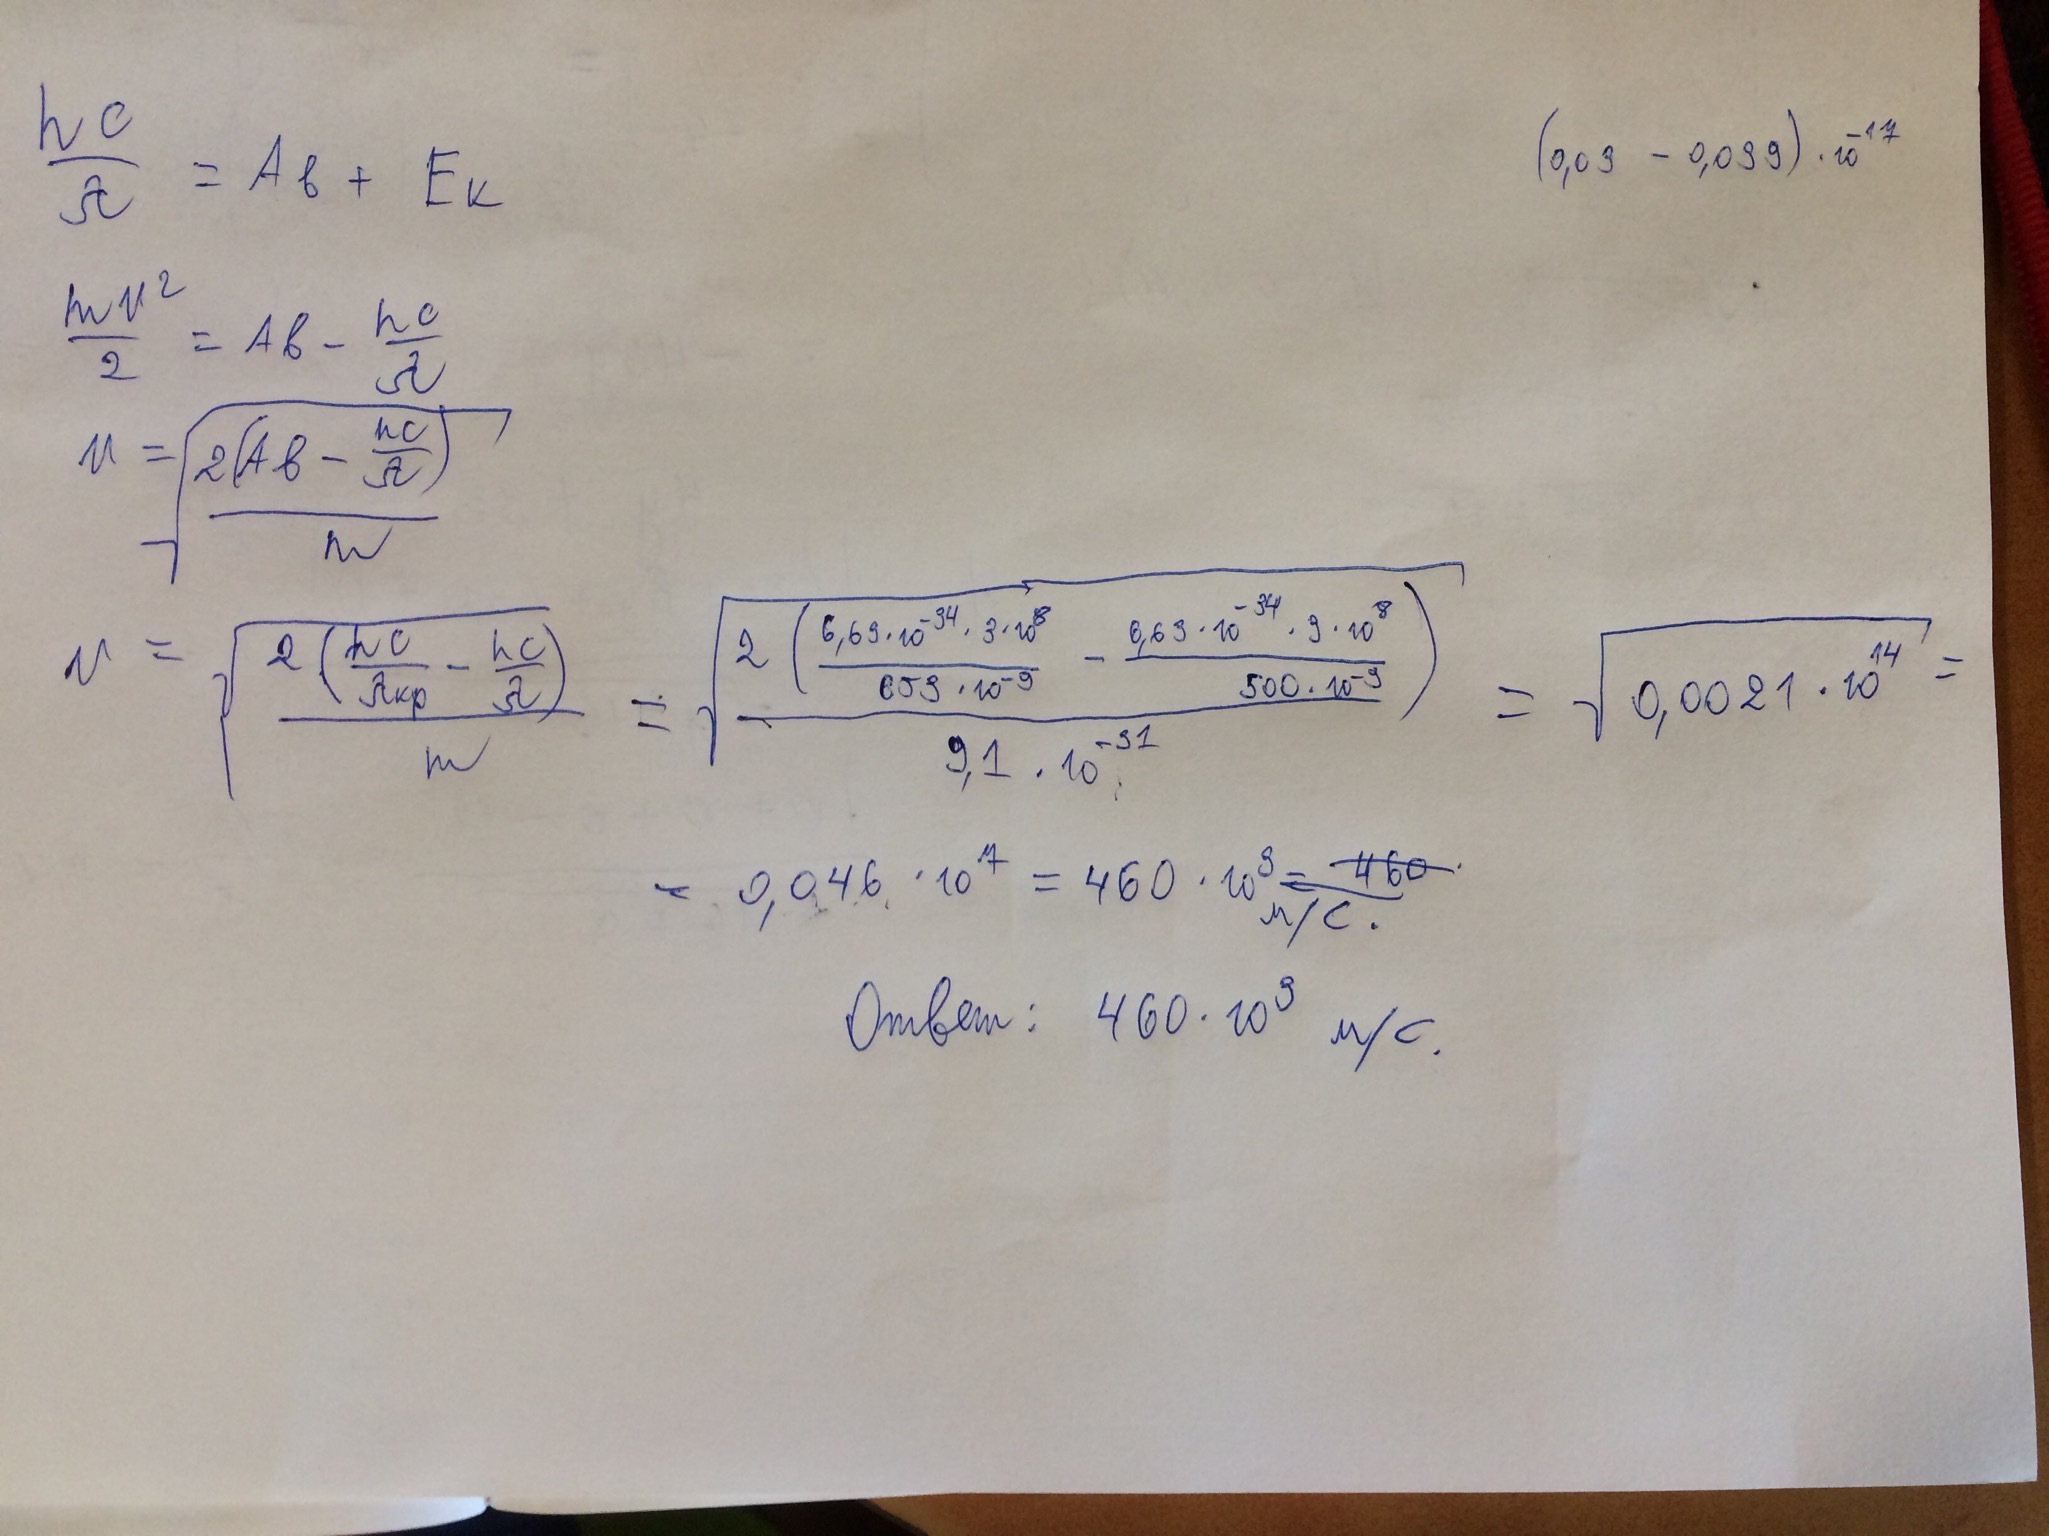 hc/λ = Aв + Eк
(0,03 - 0,039) · 10⁻¹⁷
mv²/2 = Aв - hc/λ
v = √(2(Aв - hc/λ)/m)
v = √(2(hc/λкр - hc/λ)/m) = √(2(6,63·10⁻³⁴·3·10⁸/653·10⁻⁹ - 6,63·10⁻³⁴·3·10⁸/500·10⁻⁹)/9,1·10⁻³¹) = √(0,0021·10¹⁴) =
= 0,046·10⁷ = 460·10³ = 460
м/с.
Ответ: 460·10³ м/с.